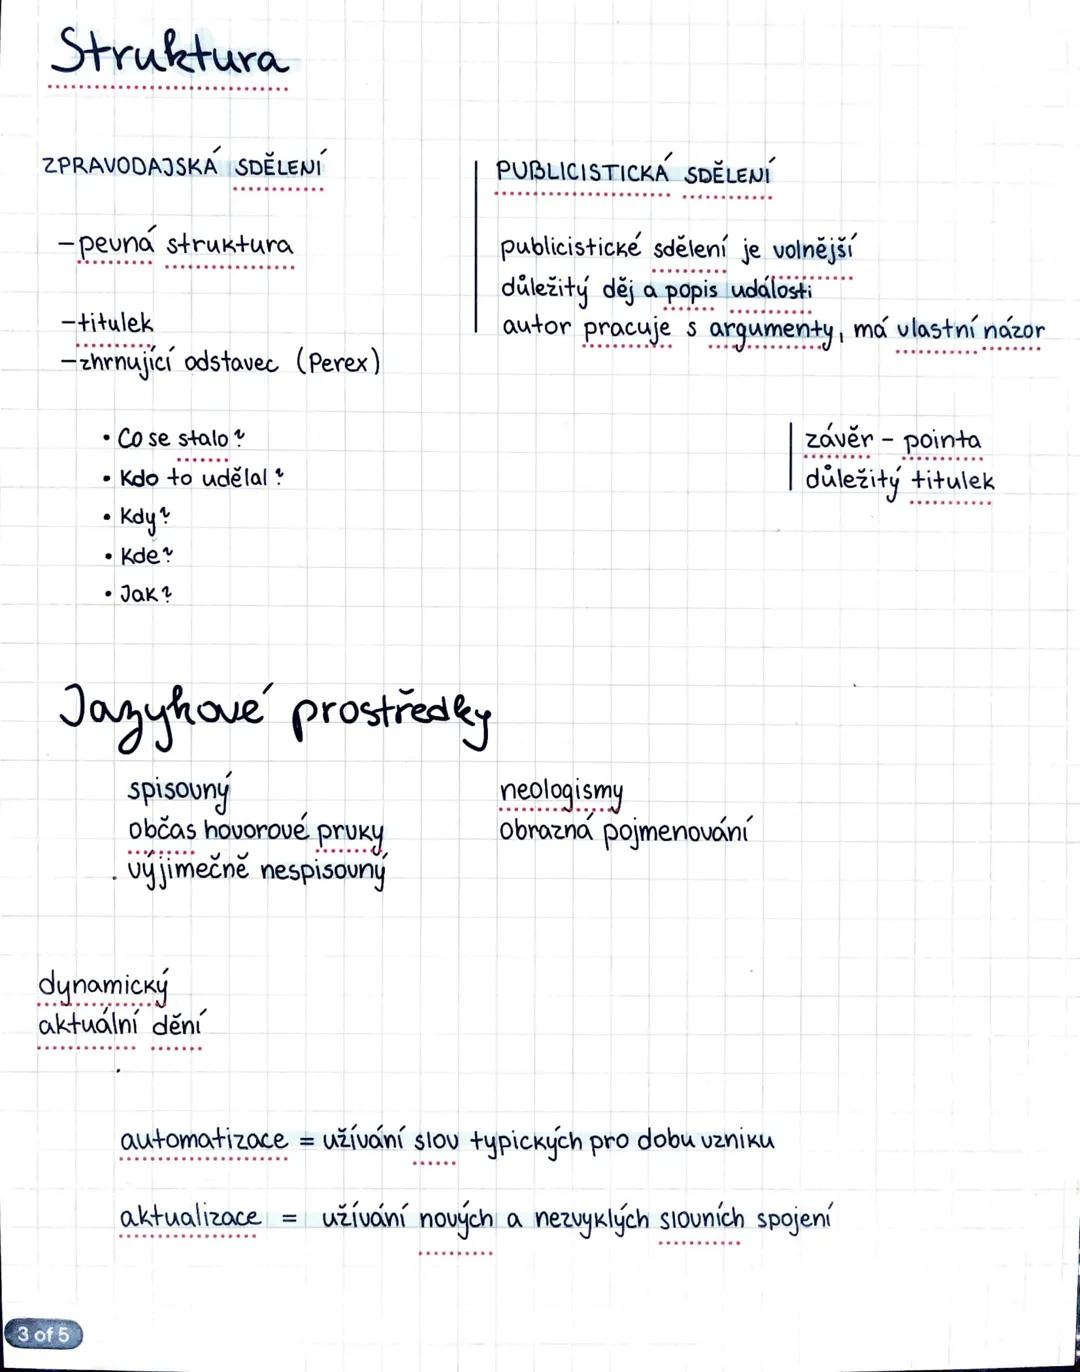 Struktura
ZPRAVODAJSKÁ SDĚLENÍ
-pevná struktura
-titulek
-zhrnující odstavec (Perex)
• Co se stalo?
• Kdo to udělal?
• Kdy?
• Kde?
• Jak?
PUBLICISTICKÁ SDĚLENÍ
publicistické sdělení je volnější
důležitý děj a popis události
autor pracuje s argumenty, má vlastní názor
závěr - pointa
důležitý titulek
Jazykové prostředky
spisovný
občas hovorové prvky
výjimečně nespisovný
neologismy
obrazná pojmenování
dynamický
aktuální dění
automatizace = užívání slov typických pro dobu vzniku
aktualizace = užívání nových a nezvyklých slovních spojení
3 of 5